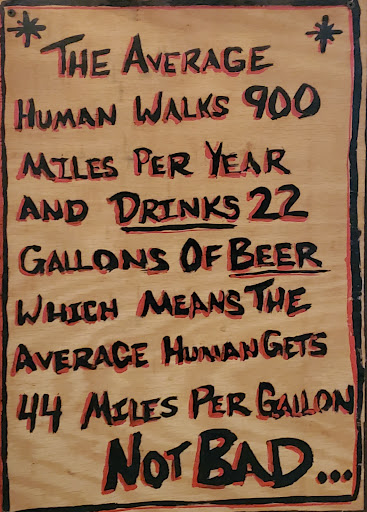 The Average
Human Walks 900
Miles Per Year
And Drinks 22
Gallons Of Beer
Which Means The
Average Human Gets
44 Miles Per Gallon
Not Bad...